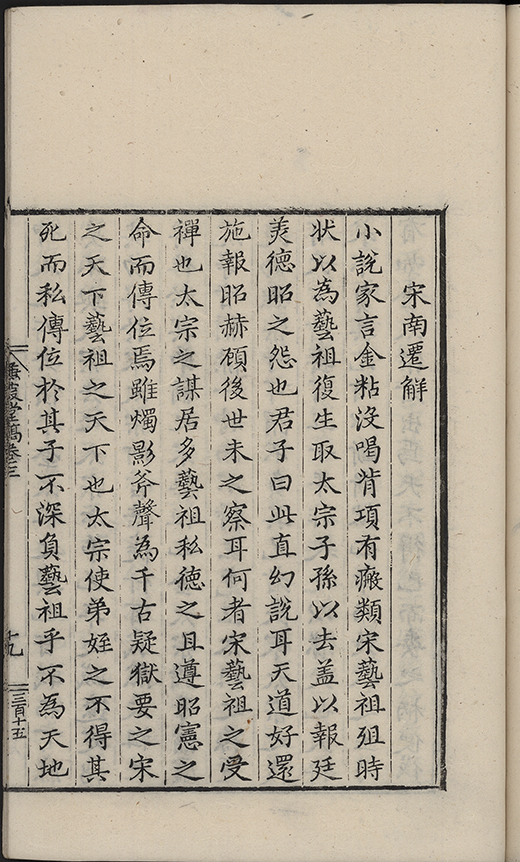 宋南遷解
小說家言金粘没喝背項有瘢類宋藝祖殂時
狀以為藝祖復生取太宗子孫以去盖以報廷
羙德昭之怨也君子曰此直幻說耳天道好還
施報昭赫頋後世未之察耳何者宋藝祖之受
禪也太宗之謀居多藝祖私德之且遵昭憲之
命而傳位焉雖燭影斧聲為千古疑獄要之宋
之天下藝祖之天下也太宗使弟姪之不得其
死而私傳位於其子不深負藝祖乎不為天地
堂稿卷三
十九
三百十五